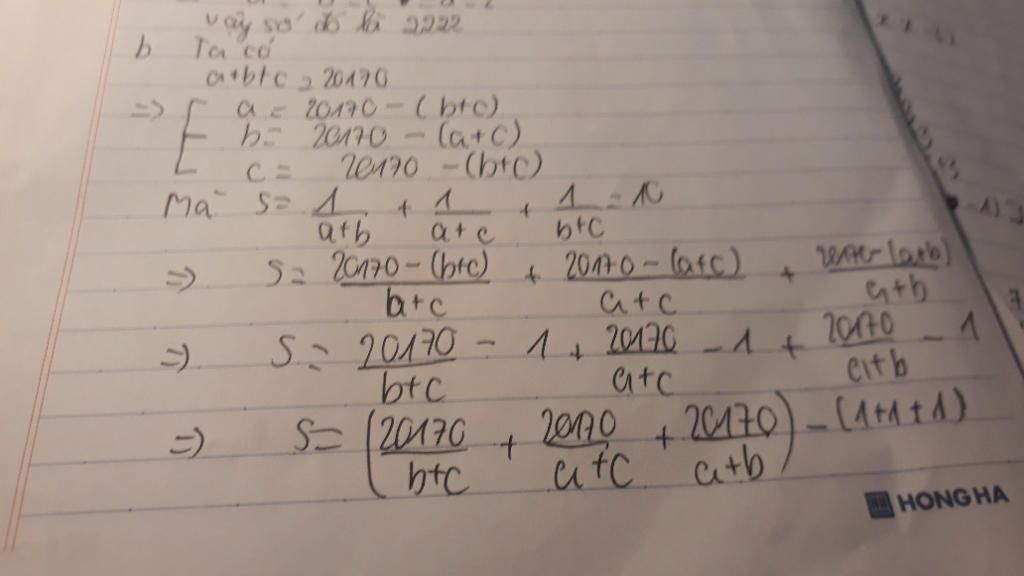 vậy số đó là 2222
b Ta có
a+b+c = 20170
=> [ a = 20170 - (b+c)
b = 20170 - (a+c)
c = 20170 - (b+c)
Mà S = 1/a+b + 1/a+c + 1/b+c = 10
=> S = 20170-(b+c)/b+c + 20170-(a+c)/a+c + 20170-(a+b)/a+b
=> S = 20170/b+c - 1 + 20170/a+c - 1 + 20170/a+b - 1
=> S = (20170/b+c + 20170/a+c + 20170/a+b) - (1+1+1)
HONG HA